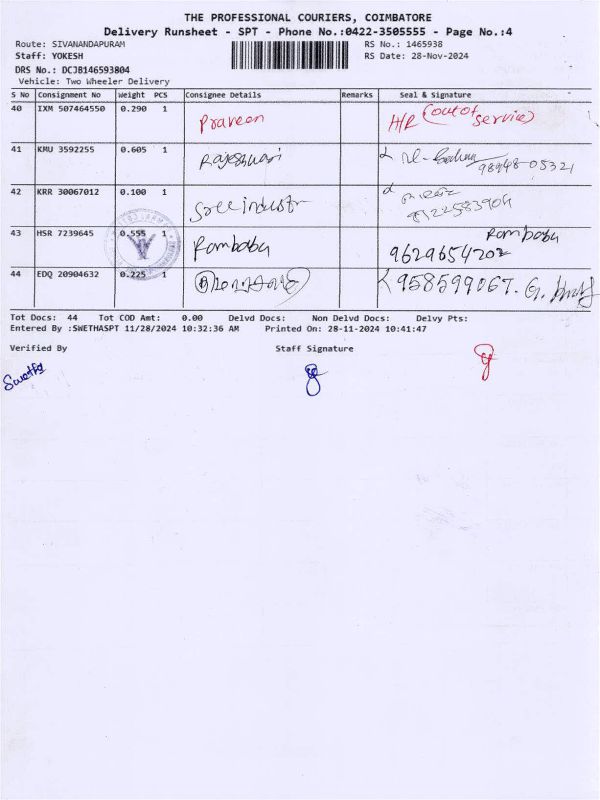 THE PROFESSIONAL COURIERS, COIMBATORE
Delivery Runsheet - SPT - Phone No.:0422-3505555 - Page No.:4
Route: SIVANANDAPURAM RS No.: 1465938
Staff: YOKESH RS Date: 28-Nov-2024
DRS No.: DCJB146593804
Vehicle: Two Wheeler Delivery
S No Consignment No Weight PCS Consignee Details Remarks Seal & Signature
40 IXM 507464550 0.290 1 Praveen (out of service)
41 KMU 3592255 0.605 1 Rajeshwari 98948-05321
42 KRR 30067012 0.100 1 Sree industr
43 HSR 7239645 0.555 1 Rambabu Rambabu
9629654202
44 EDQ 20904632 0.225 1
Tot Docs: 44 Tot COD Amt: 0.00 Delvd Docs: Non Delvd Docs: Delvy Pts:
Entered By :SWETHASPT 11/28/2024 10:32:36 AM Printed On: 28-11-2024 10:41:47
Verified By Staff Signature
Swetha